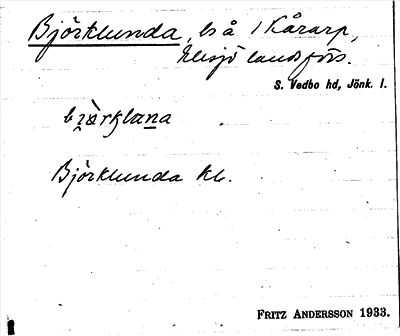 Björklunda, ls å 1 Kårarp,
Eksjö landsförs.
S. Vedbo hd, Jönk. l.
Björklunda kl.
FRITZ ANDERSSON 1933.